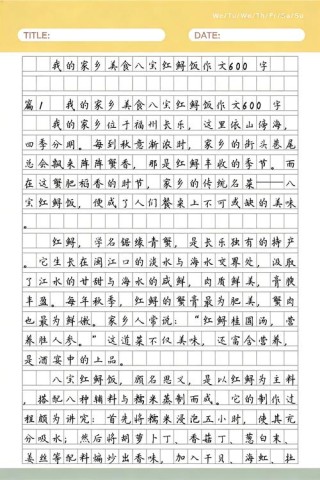 Mo/Tu/We/Th/Fr/Sa/Su
TITLE:
DATE:
我的家乡美食八宝红鲟饭作文600字
篇1 我的家乡美食八宝红鲟饭作文600字
我的家乡位于福州长乐，这里依山傍海，
四季分明。每到秋意渐浓时，家乡的街头巷尾
总会飘来阵阵蟹香，那是红鲟丰收的季节。而
在这蟹肥稻香的时节，家乡的传统名菜——八
宝红鲟饭，便成了人们餐桌上不可或缺的美味
。
红鲟，学名锯缘青蟹，是长乐独有的特产
。它生长在闽江口的淡水与海水交界处，汲取
了江水的甘甜与海水的咸鲜，肉质鲜美，膏腴
丰盈。每年秋季，红鲟的蟹膏最为肥美，蟹肉
也最为鲜嫩。家乡人常说：“红鲟桂圆汤，营
养胜人参。”这道菜不仅美味，还富含营养，
是酒宴中的上品。
八宝红鲟饭，顾名思义，是以红鲟为主料
，搭配八种辅料与糯米蒸制而成。它的制作过
程颇为讲究：首先将糯米浸泡五小时，使其充
分吸水；然后将胡萝卜丁、香菇丁、葱白末、
姜丝等配料煸炒出香味，加入干贝、海虹、肚